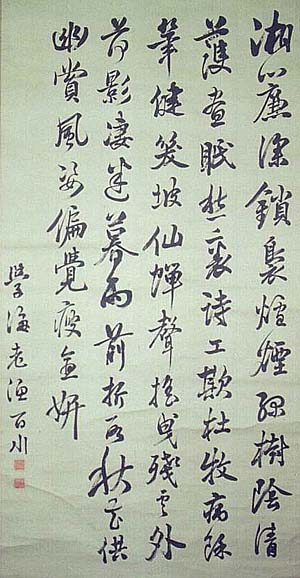 湘簾深鎖裊爐煙緑樹陰清
護晝眠愁裏詩工欺杜牧病餘
筆健笑坡仙蟬聲搖曳殘雲外
荷影凄迷暮雨前折取秋花供
幽賞風姿偏覺瘦愈妍
學海老漁百川